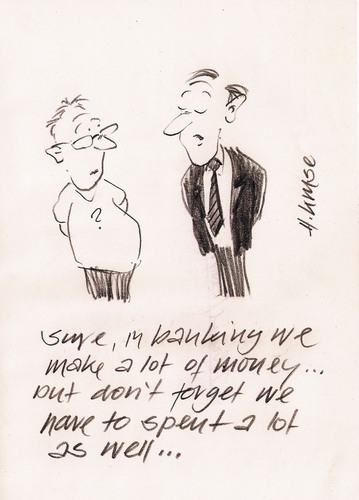 ?
H. Kruse
sure, in banking we
make a lot of money...
but don't forget we
have to spent a lot
as well...